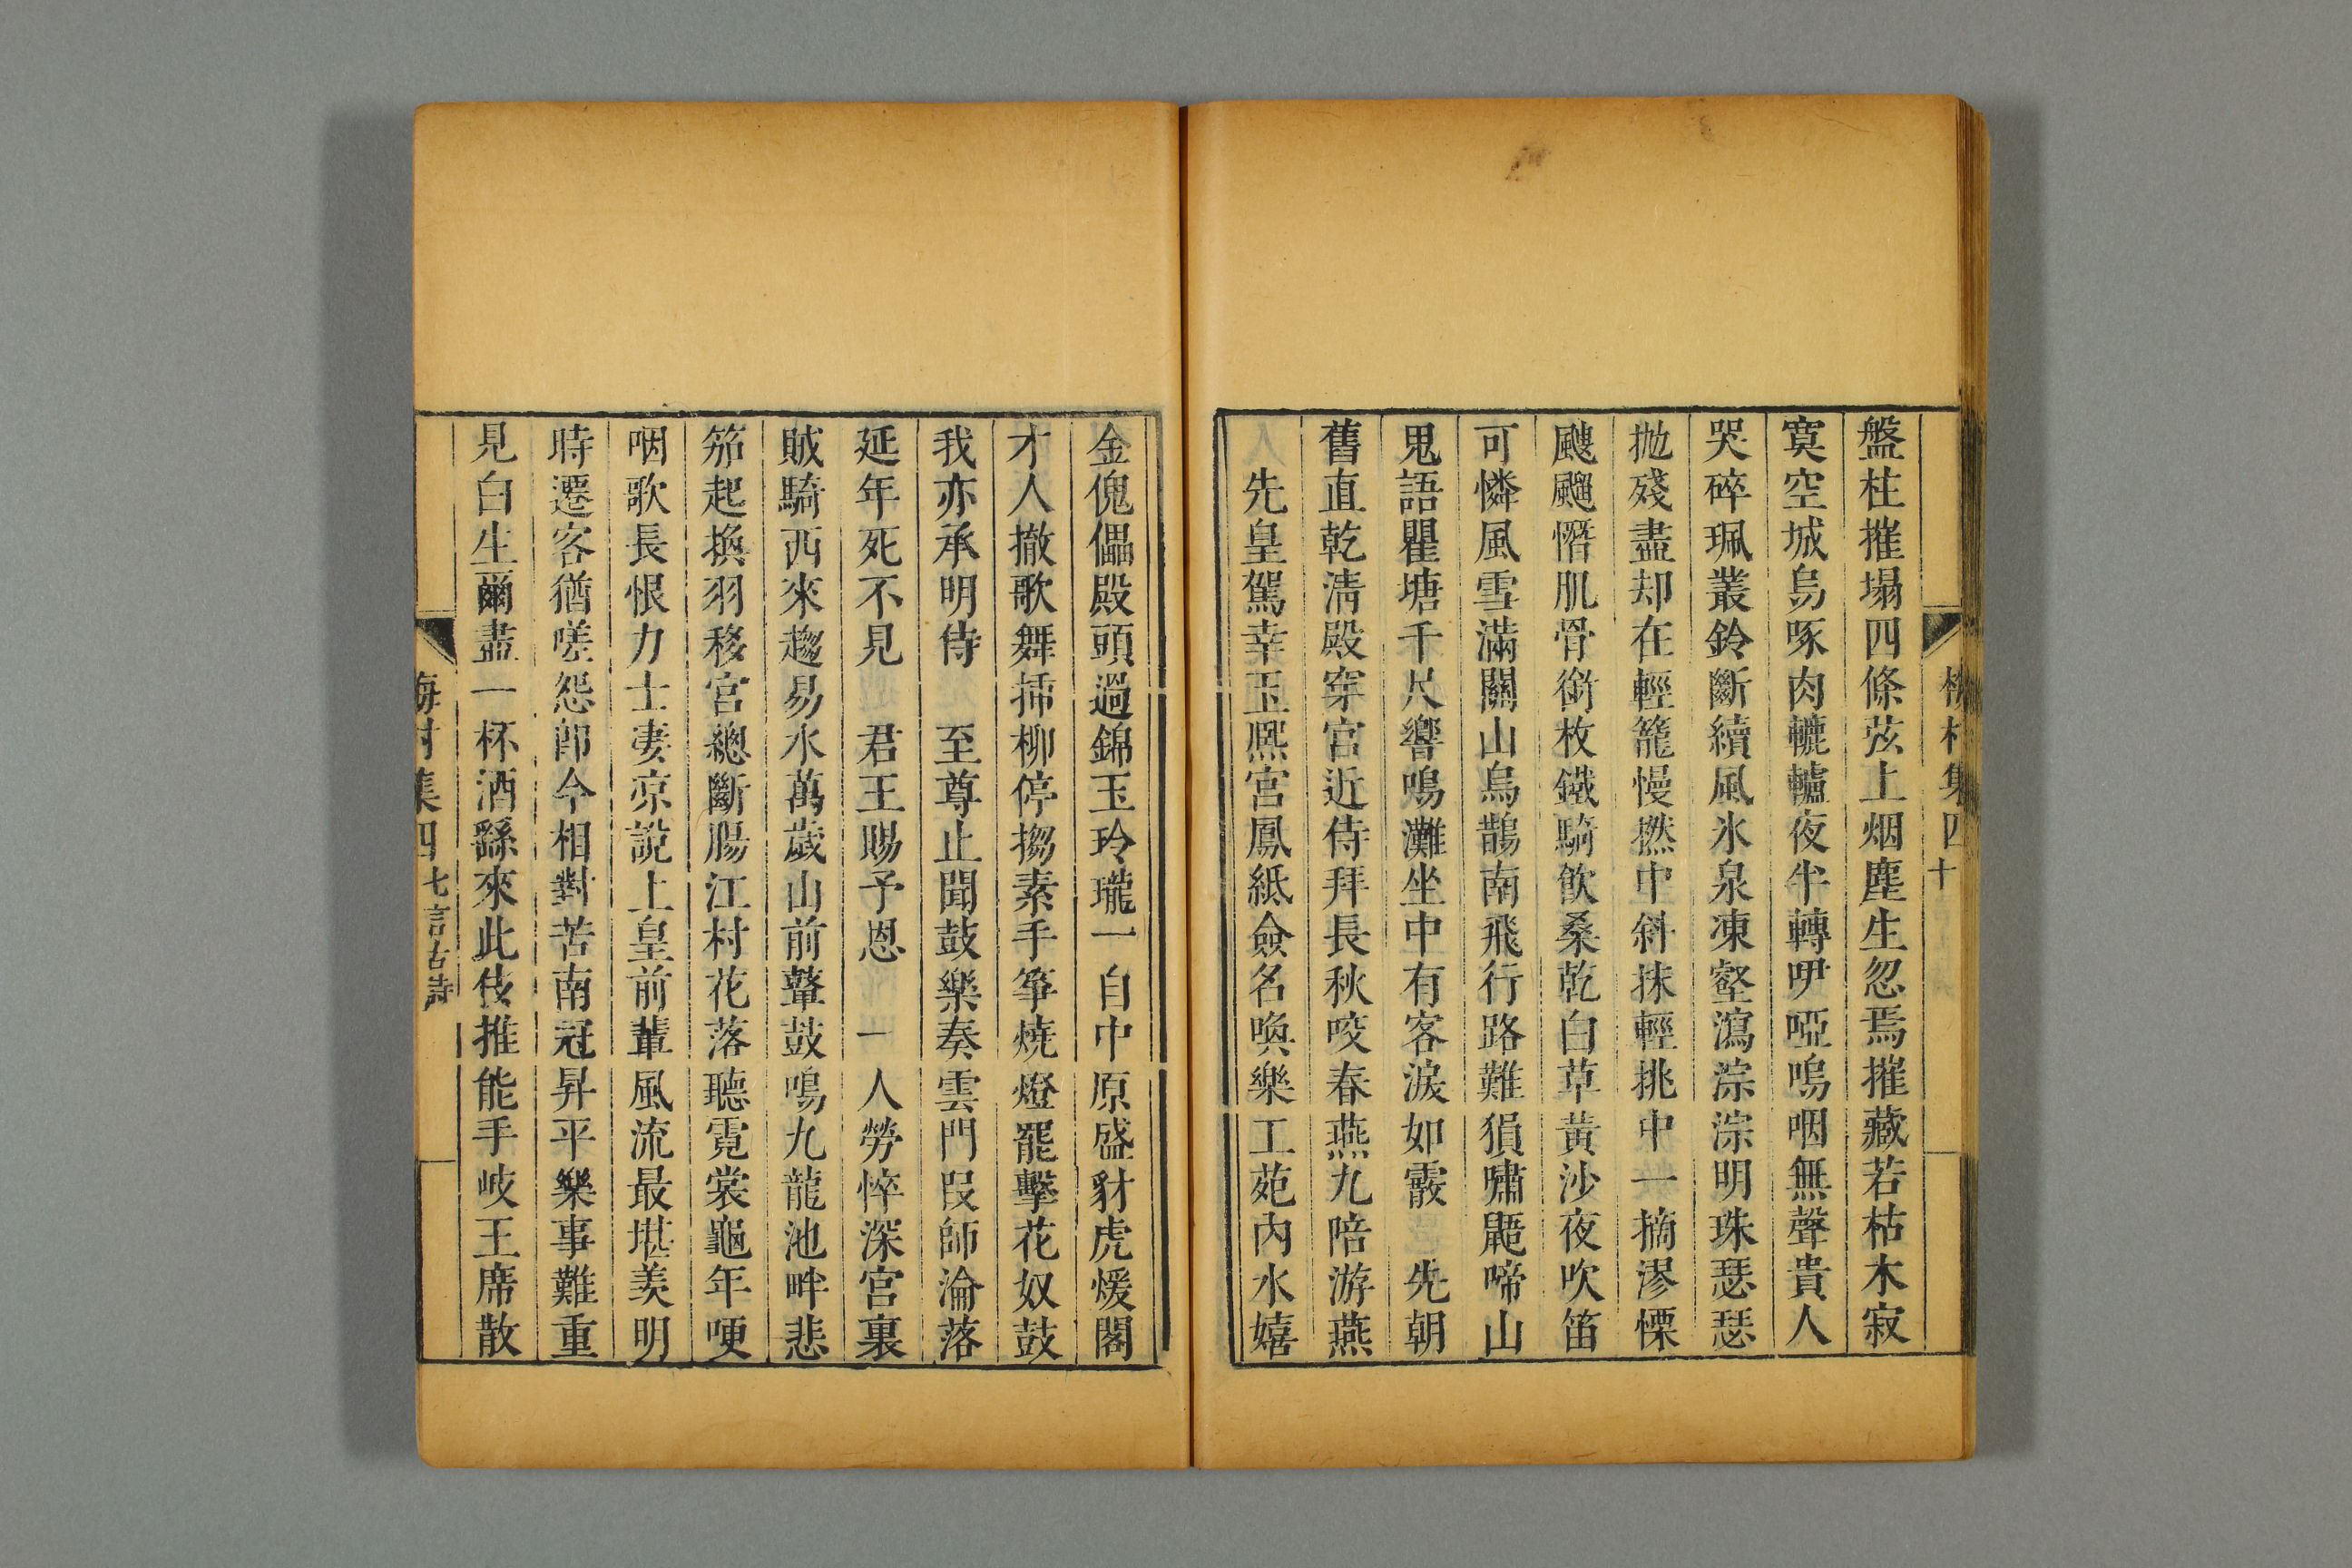 梅村集四 十
盤柱摧塌四條弦上烟塵生忽焉摧藏若枯木寂
寞空城烏啄肉轆轤夜半轉咿啞嗚咽無聲貴人
哭碎珮叢鈴斷續風氷泉凍壑瀉淙淙明珠瑟瑟
抛殘盡却在輕籠慢撚中斜抹輕挑中一摘漻慄
颼飀憯肌骨銜枚鐵騎飮桑乾白草黃沙夜吹笛
可憐風雪滿關山烏鵲南飛行路難猖嘯鼯啼山
鬼語瞿塘千尺響鳴灘坐中有客淚如霰 先朝
舊直乾淸殿穿宮近侍拜長秋咬春燕九陪游燕
先皇駕幸玉熈宮鳳紙僉名喚樂工苑內水嬉
金傀儡殿頭過錦玉玲瓏一自中原盛豺虎煖閣
才人撤歌舞揷柳停搊素手箏燒燈罷擊花奴鼓
我亦承明侍 至尊止聞鼓樂奏雲門段師淪落
延年死不見 君王賜予恩 一人勞悴深宮裏
賊騎西來趨易水萬歲山前鼙鼓鳴九龍池畔悲
笳起換羽移宮總斷腸江村花落聽霓裳龜年哽
咽歌長恨力士凄凉說上皇前輩風流最堪羨明
時遷客猶嗟怨卽今相對苦南冠昇平樂事難重
見白生爾盡一杯酒繇來此伎推能手岐王席散
梅村集四 七言古詩